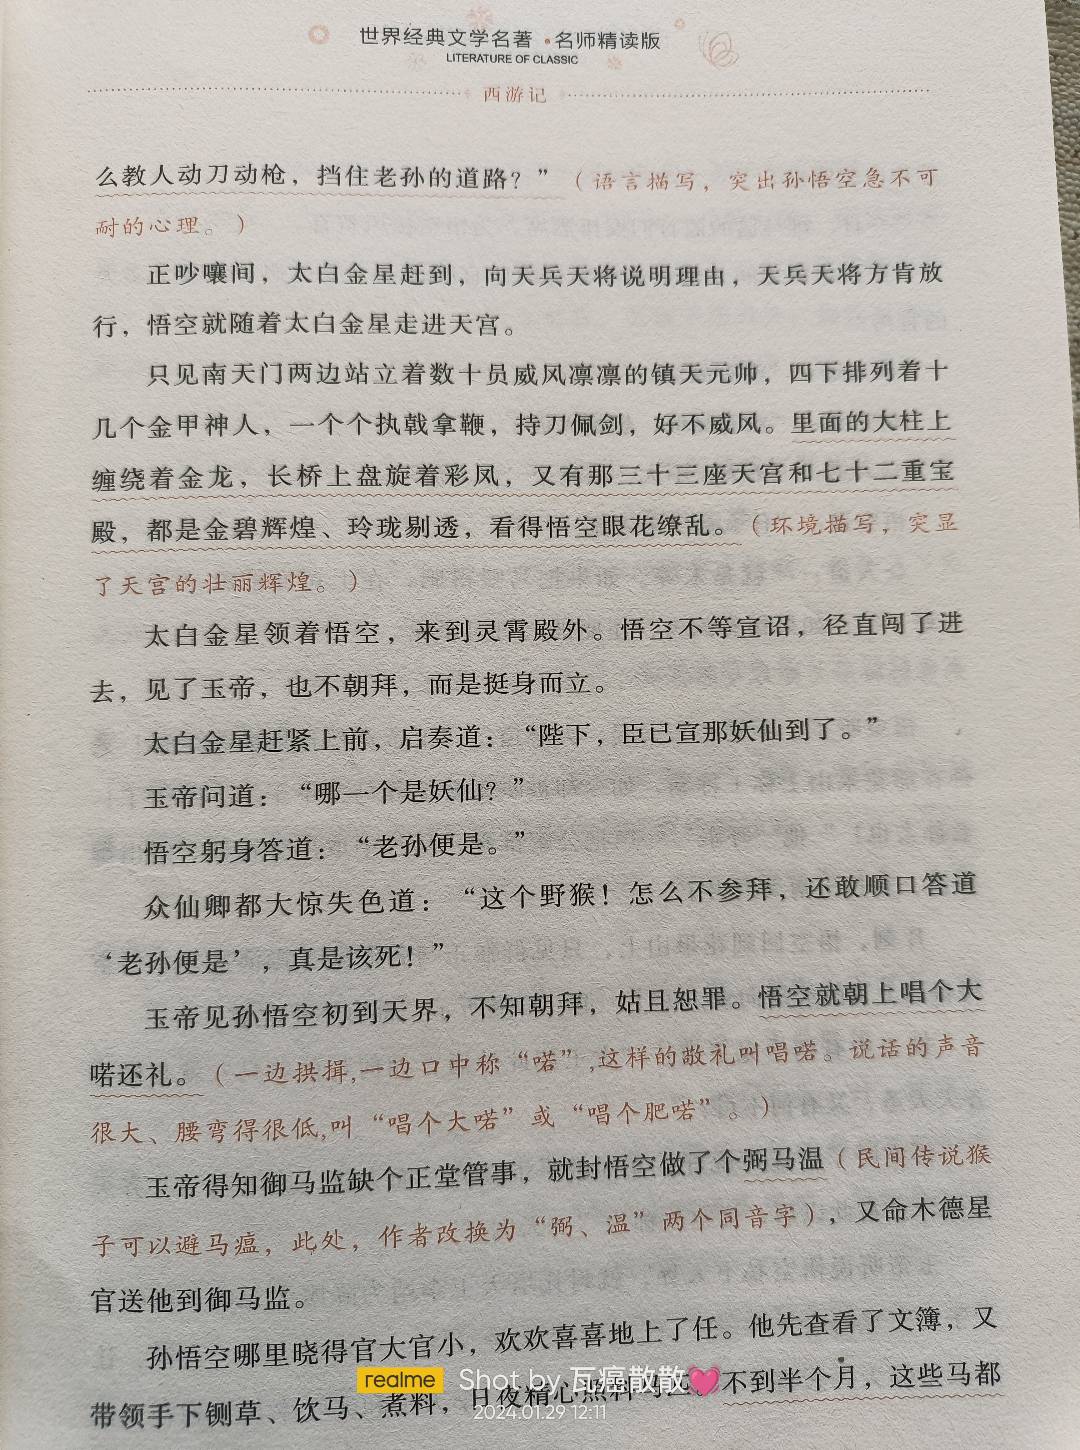 世界经典文学名著·名师精读版
LITERATURE OF CLASSIC
西游记
么教人动刀动枪，挡住老孙的道路？”（语言描写，突出孙悟空急不可
耐的心理。）
正吵嚷间，太白金星赶到，向天兵天将说明理由，天兵天将方肯放
行，悟空就随着太白金星走进天宫。
只见南天门两边站立着数十员威风凛凛的镇天元帅，四下排列着十
几个金甲神人，一个个执戟拿鞭，持刀佩剑，好不威风。里面的大柱上
缠绕着金龙，长桥上盘旋着彩凤，又有那三十三座天宫和七十二重宝
殿，都是金碧辉煌、玲珑剔透，看得悟空眼花缭乱。（环境描写，突显
了天宫的壮丽辉煌。）
太白金星领着悟空，来到灵霄殿外。悟空不等宣诏，径直闯了进
去，见了玉帝，也不朝拜，而是挺身而立。
太白金星赶紧上前，启奏道：“陛下，臣已宣那妖仙到了。”
玉帝问道：“哪一个是妖仙？”
悟空躬身答道：“老孙便是。”
众仙卿都大惊失色道：“这个野猴！怎么不参拜，还敢顺口答道
‘老孙便是’，真是该死！”
玉帝见孙悟空初到天界，不知朝拜，姑且恕罪。悟空就朝上唱个大
喏还礼。（一边拱揖,一边口中称“喏”,这样的敬礼叫唱喏。说话的声音
很大、腰弯得很低,叫“唱个大喏”或“唱个肥喏”。）
玉帝得知御马监缺个正堂管事，就封悟空做了个弼马温（民间传说猴
子可以避马瘟，此处，作者改换为“弼、温”两个同音字），又命木德星
官送他到御马监。
孙悟空哪里晓得官大官小，欢欢喜喜地上了任。他先查看了文簿，又
带领手下铡草、饮马、煮料，日夜精心照料 不到半个月，这些马都
realme Shot by 瓦癌散散💓
2024.01.29 12:11